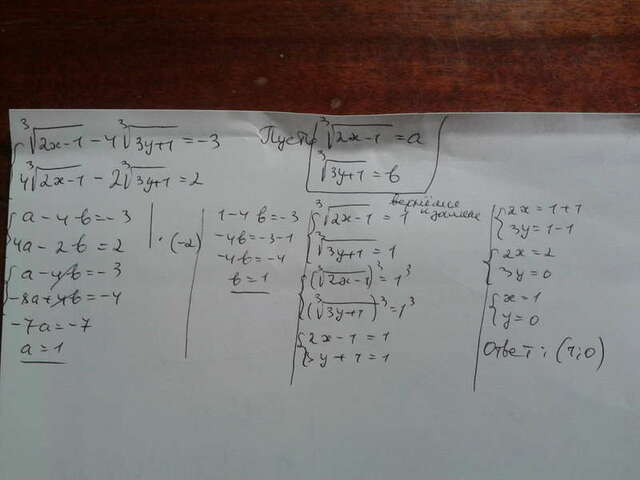 ∛(2x-1) - 4∛(3y+1) = -3
4∛(2x-1) - 2∛(3y+1) = 2
Пусть ∛(2x-1) = a
∛(3y+1) = b
a - 4b = -3
4a - 2b = 2 | · (-2)
a - 4b = -3
-8a + 4b = -4
-7a = -7
a = 1
1 - 4b = -3
-4b = -3 - 1
-4b = -4
b = 1
вернёмся к замене
∛(2x-1) = 1
∛(3y+1) = 1
(∛(2x-1))³ = 1³
(∛(3y+1))³ = 1³
2x - 1 = 1
3y + 1 = 1
2x = 1 + 1
3y = 1 - 1
2x = 2
3y = 0
x = 1
y = 0
Ответ: (1;0)